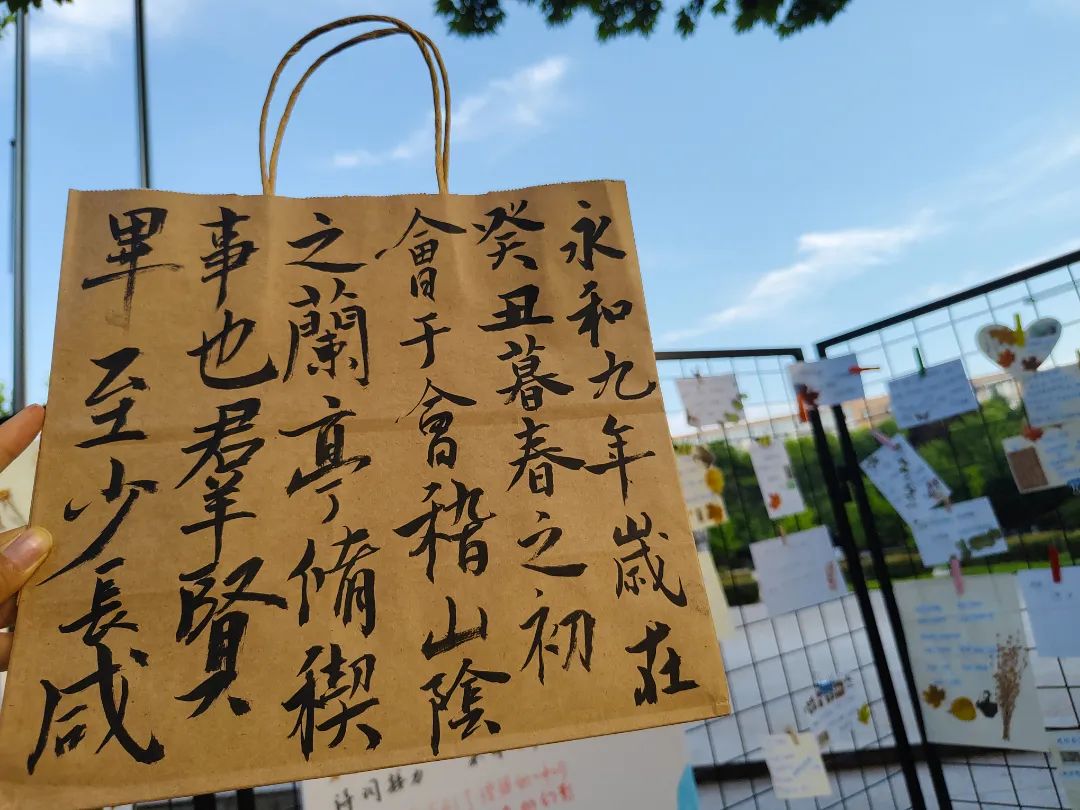 永和九年歲在
癸丑暮春之初
會于會稽山陰
之蘭亭脩禊
事也羣賢
畢至少長咸